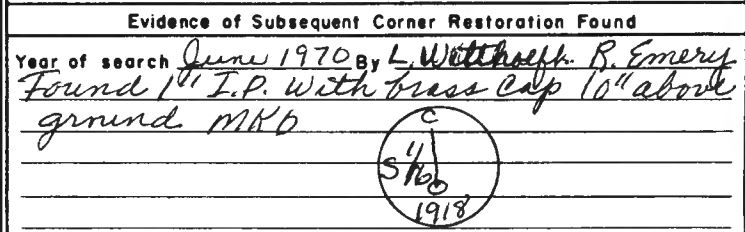 Evidence of Subsequent Corner Restoration Found
Year of search June 1970 By L. Witthoeft. R. Emery
Found 1" I.P. With brass cap 10" above
ground MKD
C
S 1/16
1918